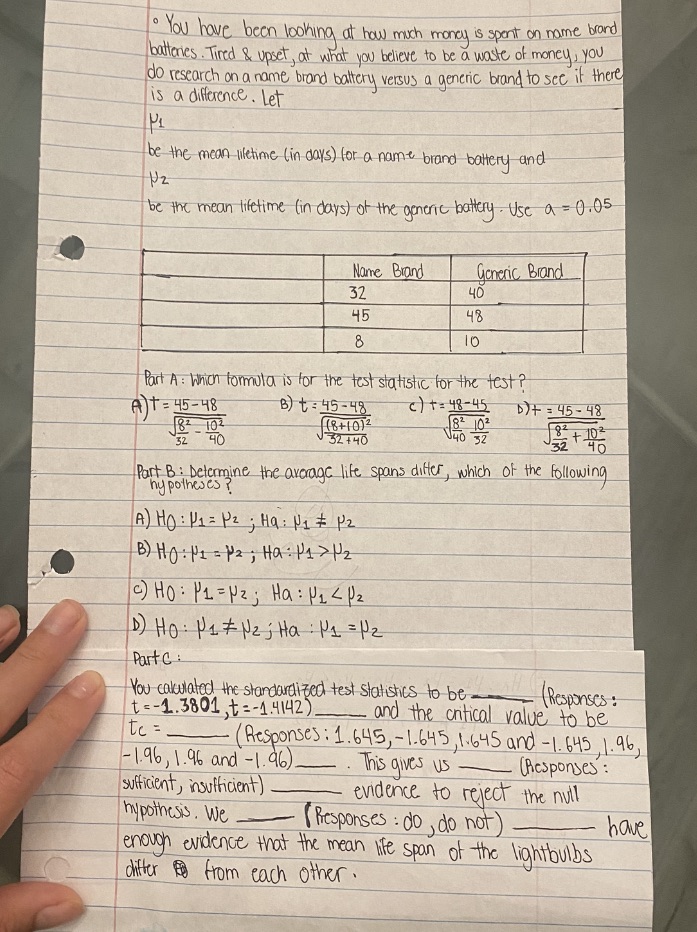 ° You have been looking at how much money is spent on name brand
batteries. Tired & upset, at what you believe to be a waste of money, you
do research on a name brand battery versus a generic brand to see if there
is a difference. Let
μ1
be the mean lifetime (in days) for a name brand battery and
μ2
be the mean lifetime (in days) of the generic battery. Use a = 0.05
Name Brand Generic Brand
32 40
45 48
8 10
Part A: Which formula is for the test statistic for the test?
A) t = 45-48 / √(8²/32 - 10²/40) B) t = 45-48 / √((8+10)²/32+40) C) t = 48-45 / √(8²/40 10²/32) D) t = 45-48 / √(8²/32 + 10²/40)
Part B: Determine the average life spans differ, which of the following
hypotheses?
A) H0: μ1 = μ2 ; Ha: μ1 ≠ μ2
B) H0: μ1 = μ2 ; Ha: μ1 > μ2
C) H0: μ1 = μ2 ; Ha: μ1 < μ2
D) H0: μ1 ≠ μ2 ; Ha: μ1 = μ2
Part C:
You calculated the standardized test statistics to be ____ (Responses:
t = -1.3801, t = -1.4142) ____ and the critical value to be
tc = ____ (Responses: 1.645, -1.645, 1.645 and -1.645, 1.96,
-1.96, 1.96 and -1.96) ____. This gives us ____ (Responses:
sufficient, insufficient) ____ evidence to reject the null
hypothesis. We ____ (Responses: do, do not) ____ have
enough evidence that the mean life span of the lightbulbs
differ from each other.